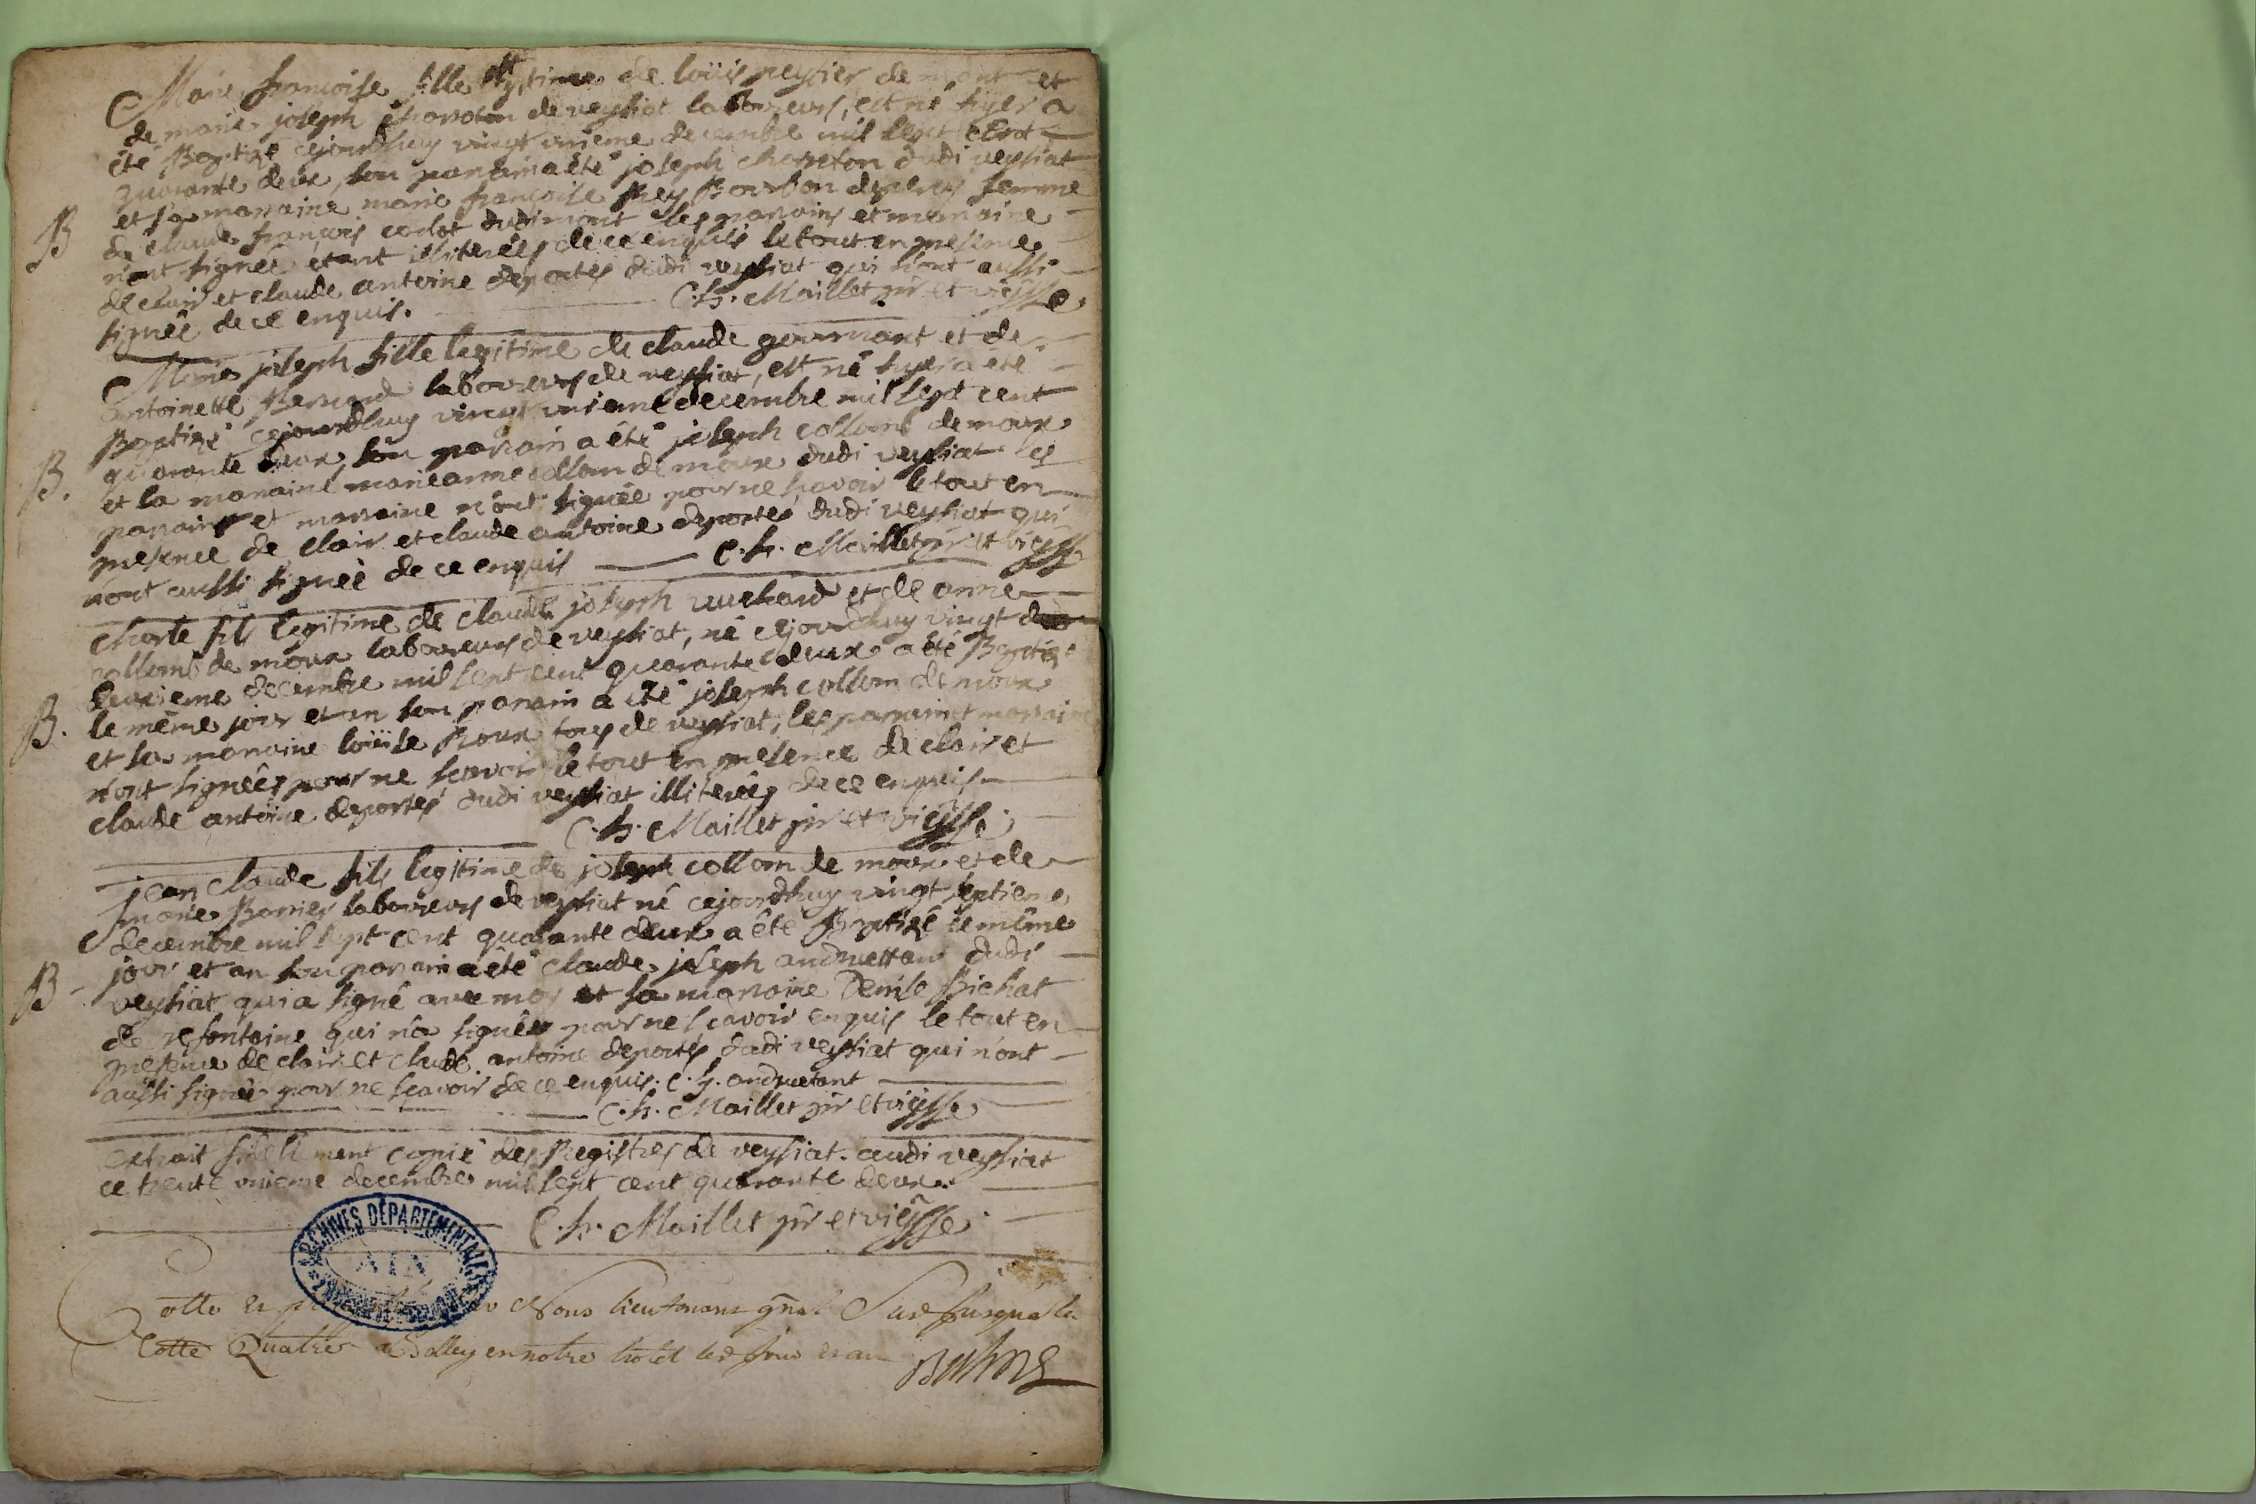 Marie françoise fille legitime de loüis reyzier de mont et
de marie joseph charreton de veyziat laboureurs, est né hyer a
été Baptizé cejourdhuy vingt unieme decembre mil sept cent
quarante deux, son parain a été joseph charreton dudi veyziat
et sa marraine marie françoise Rey Bourbon femme
B
de claude françois collet dudi mont les parains et marraine
n'ont signéé étant illiterées de ce enquis le tout en presence
de clair et claude antoine deportes dudi veyziat qui n'ont aussi
signéé de ce enquis. C. h. Maillet ptr et vic
Marie joseph fille legitime de claude gourmant et de
antoinette Bernard laboureurs de veyziat, est né hyer a été
Baptizé cejourdhuy vingt unieme decembre mil sept cent
quarante deux, son parain a été joseph collomb de moux
B.
et la maraine marie anne collom de moux dudi veyziat les
parains et marraine n'ont signéé pour ne sçavoir le tout en
presence de clair et claude antoine deportes dudi veyziat qui
n'ont aussi signéé de ce enquis C. h. Maillet ptr et vic
charle fils legitime de claude joseph vuchard et de anne
collomb de moux laboureurs de veyziat, né cejourdhuy vingt
deuxieme decembre mil sept cent quarante deux a été Baptizé
B.
le même jour et an son parain a été joseph collom de moux
et sa marraine loüise Roux tous de veyziat, les parain et marraine
n'ont signéés pour ne sçavoir le tout en presence de clair et
claude antoine deportes dudi veyziat illiterées de ce enquis
C. h. Maillet ptr et vic
jean claude fils legitime de joseph collom de moux et de
marie Barrier laboureurs de veyziat né cejourdhuy vingt septieme
decembre mil sept cent quarante deux a été Baptizé le même
B
jour et an son parain a été claude joseph andruettan dudi
veyziat qui a signé avec moy et sa marraine Denise Bichat
de qui n'a signéé pour ne sçavoir enquis le tout en
presence de clair et claude antoine deportes dudi veyziat qui n'ont
aussi signéé pour ne sçavoir de ce enquis. C. h. andruetant
C. h. Maillet ptr et vic
extrait fidellement copié des Registres de veyziat. audi veyziat
ce trente unieme decembre mil sept cent quarante deux
C. h. Maillet ptr et vic
ARCHIVES DÉPARTEMENTALES
AIN
Cotte et par Nous lieutenant gnal jusqua la
Cotte Quatre en notre hotel led jour et an